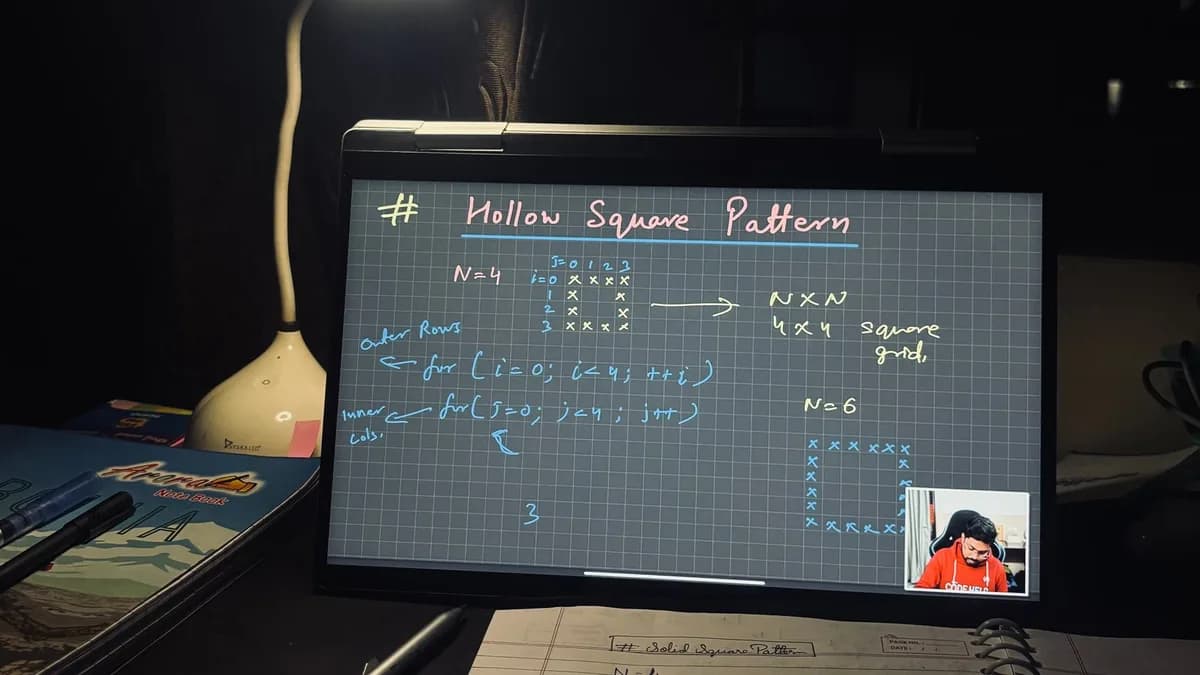 # Hollow Square Pattern
N=4
J=0 1 2 3
i=0 x x x x
1 x x
2 x x
3 x x x x
N X N
4 x 4 square
grid,
outer Rows
for ( i=0; i<4; ++i )
Inner
cols.
for( J=0; j<4; j++ )
3
N=6
x x x x x x
x x
x
x
x
x x x x x
CODE HELP
Note Book
# Solid Square Pattern
PAGE NO.
DATE: / /